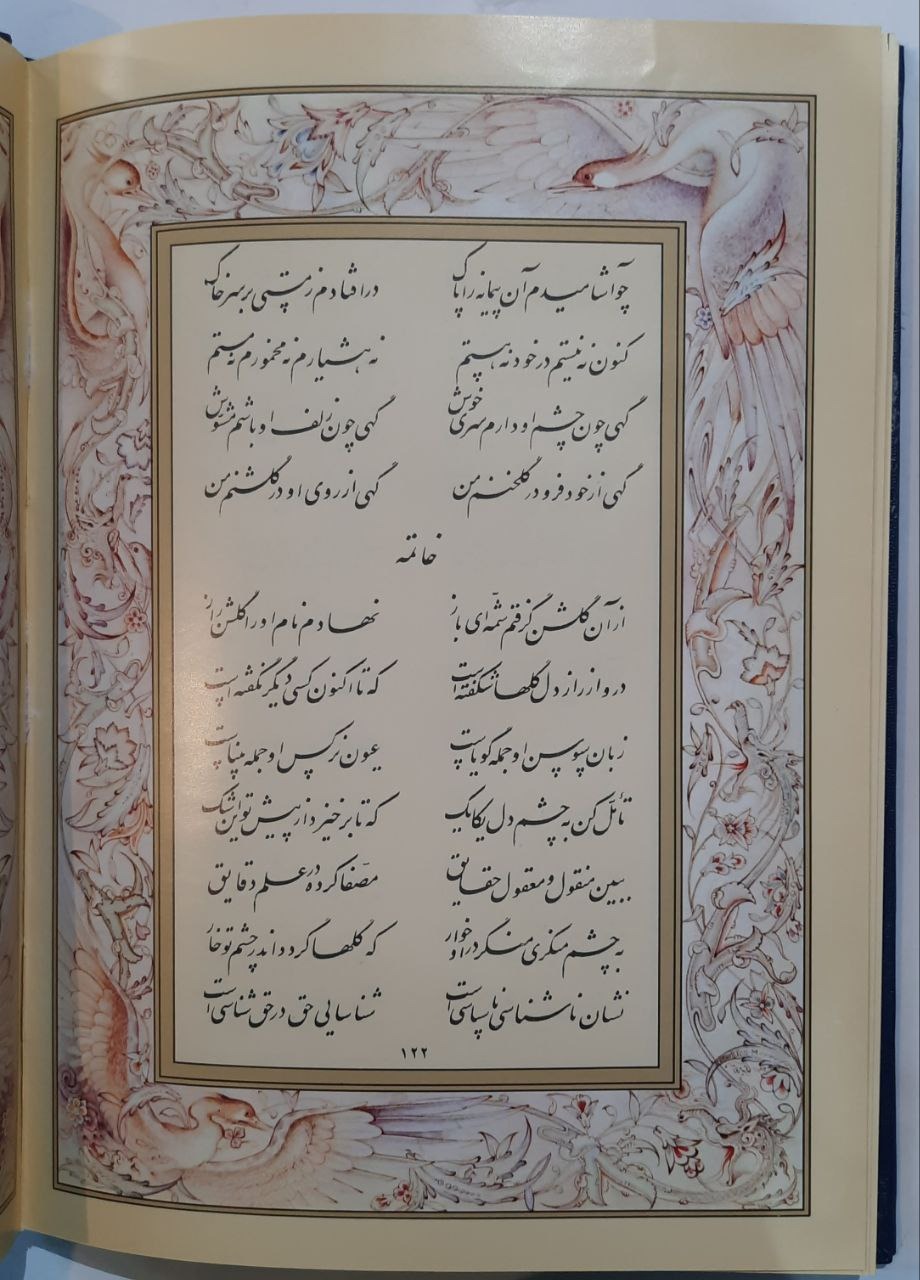 چو آشامیدم آن پیمانه را پاک در افتادم ز مستی بر سر خاک
کنون نه نیستم در خود نه هستم نه هشیارم نه مخمورم نه مستم
گهی چون چشم او دارم سری خوش گهی چون زلف او باشم مشوش
گهی از خود فرو در گلخنم من گهی از روی او در گلشنم من
خاتمه
از آن گلشن گرفتم شمّه‌ای باز نهادم نام او را گلشن راز
در او از راز دل گلها شکفته است که تا اکنون کسی دیگر نگفته است
زبان سوسن او جمله گویاست عیون نرگس او جمله بیناست
تأمّل کن به چشم دل یکایک که تا برخیزد از پیش تو این شک
ببین منقول و معقول حقایق مصفّا کرده در علم دقایق
به چشم منکری منگر در او خوار که گلها گردد اندر چشم تو خار
نشان ناشناسی ناسپاسی است شناسایی حق در حق شناسی است
۱۲۲